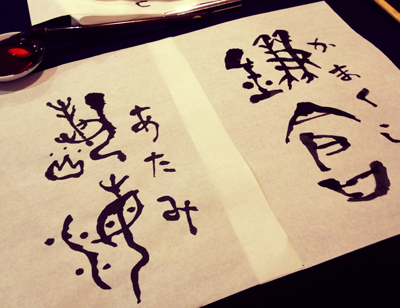 かまくら
鎌倉
あたみ
熱海